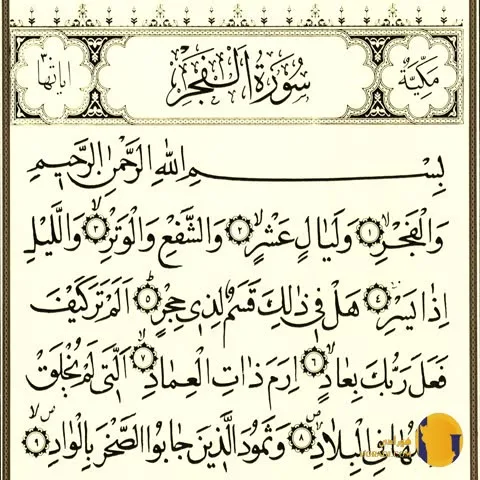 مَكِّيَّةٌ سُورَةُ الْفَجْرِ آيَاتُهَا ٣٠
بِسْمِ اللهِ الرَّحْمٰنِ الرَّحِيمِ
وَالْفَجْرِۙ ١ وَلَيَالٍ عَشْرٍۙ ٢ وَالشَّفْعِ وَالْوَتْرِۙ ٣ وَاللَّيْلِ
اِذَا يَسْرِۚ ٤ هَلْ فٖى ذٰلِكَ قَسَمٌ لِذٖى حِجْرٍؕ ٥ اَلَمْ تَرَ كَيْفَ
فَعَلَ رَبُّكَ بِعَادٍۙ ٦ اِرَمَ ذَاتِ الْعِمَادِۙ ٧ اَلَّتٖى لَمْ يُخْلَقْ
فِى الْبِلَادِۙ ٨ وَثَمُودَ الَّذٖينَ جَابُوا الصَّخْرَ بِالْوَادِۙ ٩